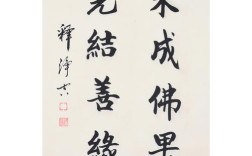 未成佛果
先結善緣
釋淨空